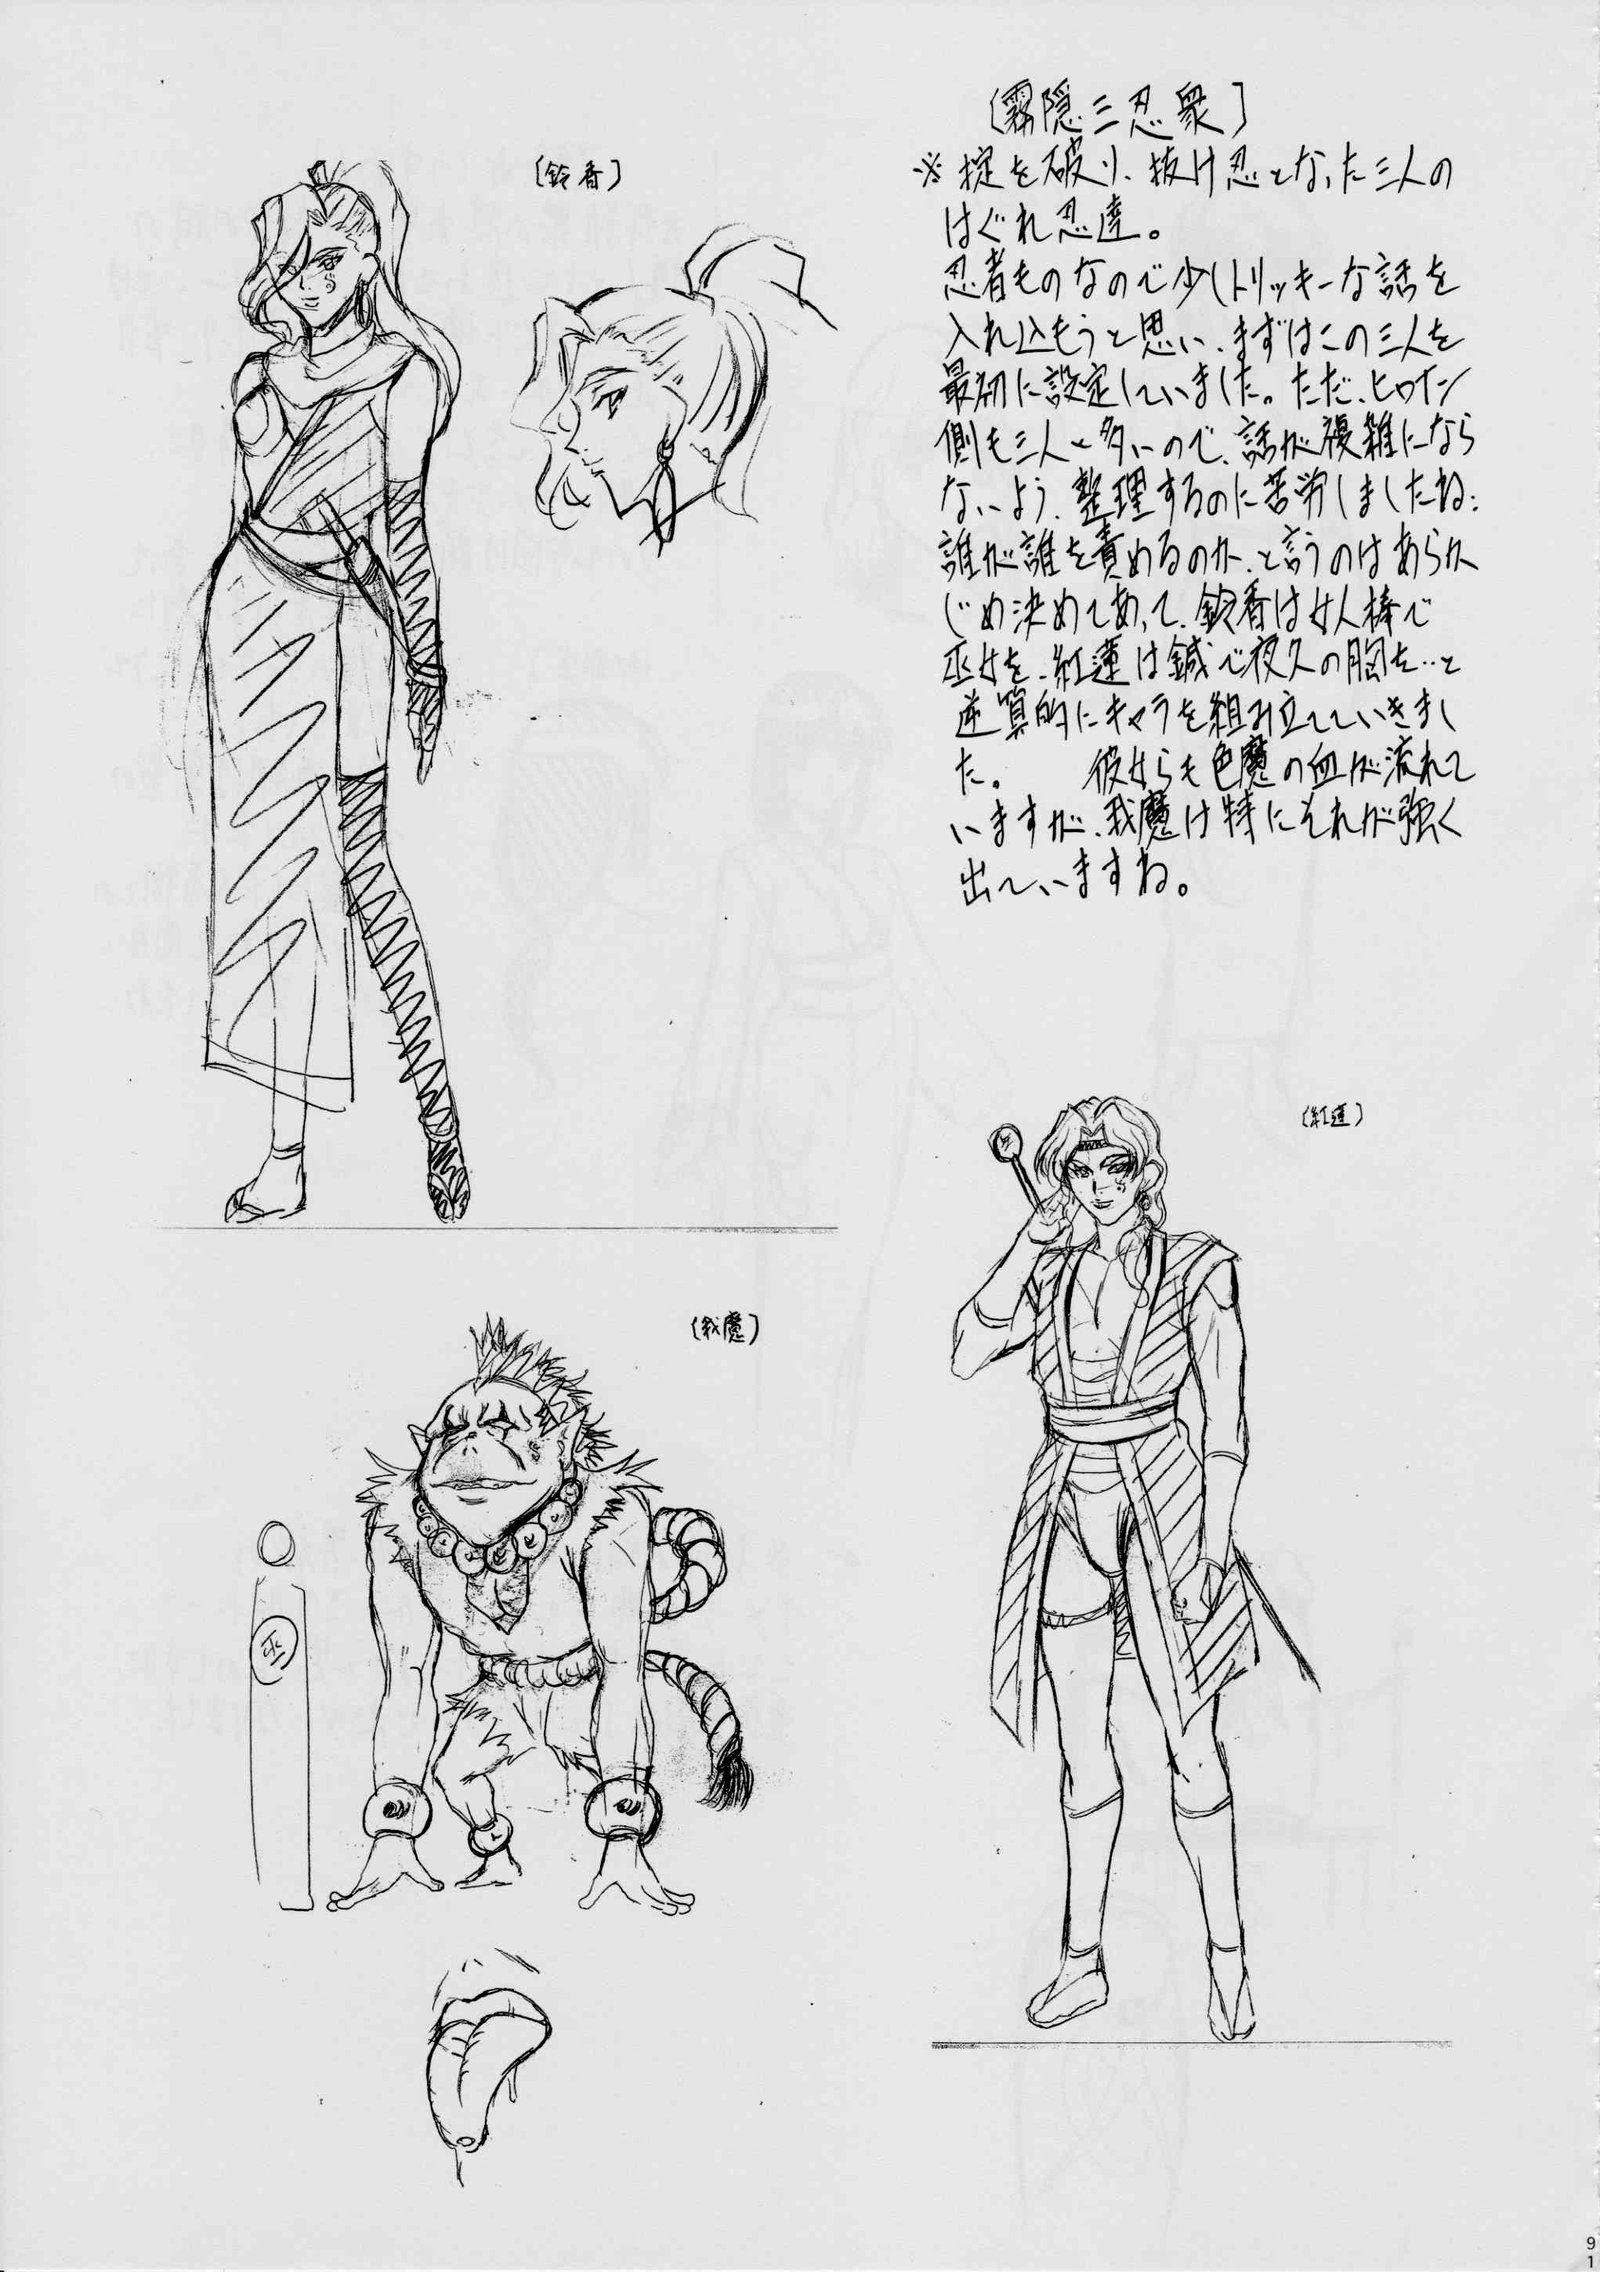 〔霧隠三忍衆〕
※掟を破り、抜け忍となった三人の
はぐれ忍達。
忍者ものなので少しトリッキーな話を
入れ込もうと思い、まずはこの三人を
最初に設定していました。ただ、ヒロイン
側も三人と多いので、話が複雑になら
ないよう、整理するのに苦労しましたね;
誰が誰を責めるのか、と言うのはあらか
じめ決めてあって、鈴香は女人棒で
巫女を、紅蓮は鍼で夜久の胸を…と
逆算的にキャラを組み立てていきまし
た。 彼女らも色魔の血が流れて
いますが、我魔は特にそれが強く
出ていますね。
〔鈴香〕
〔紅蓮〕
〔我魔〕
巫
91